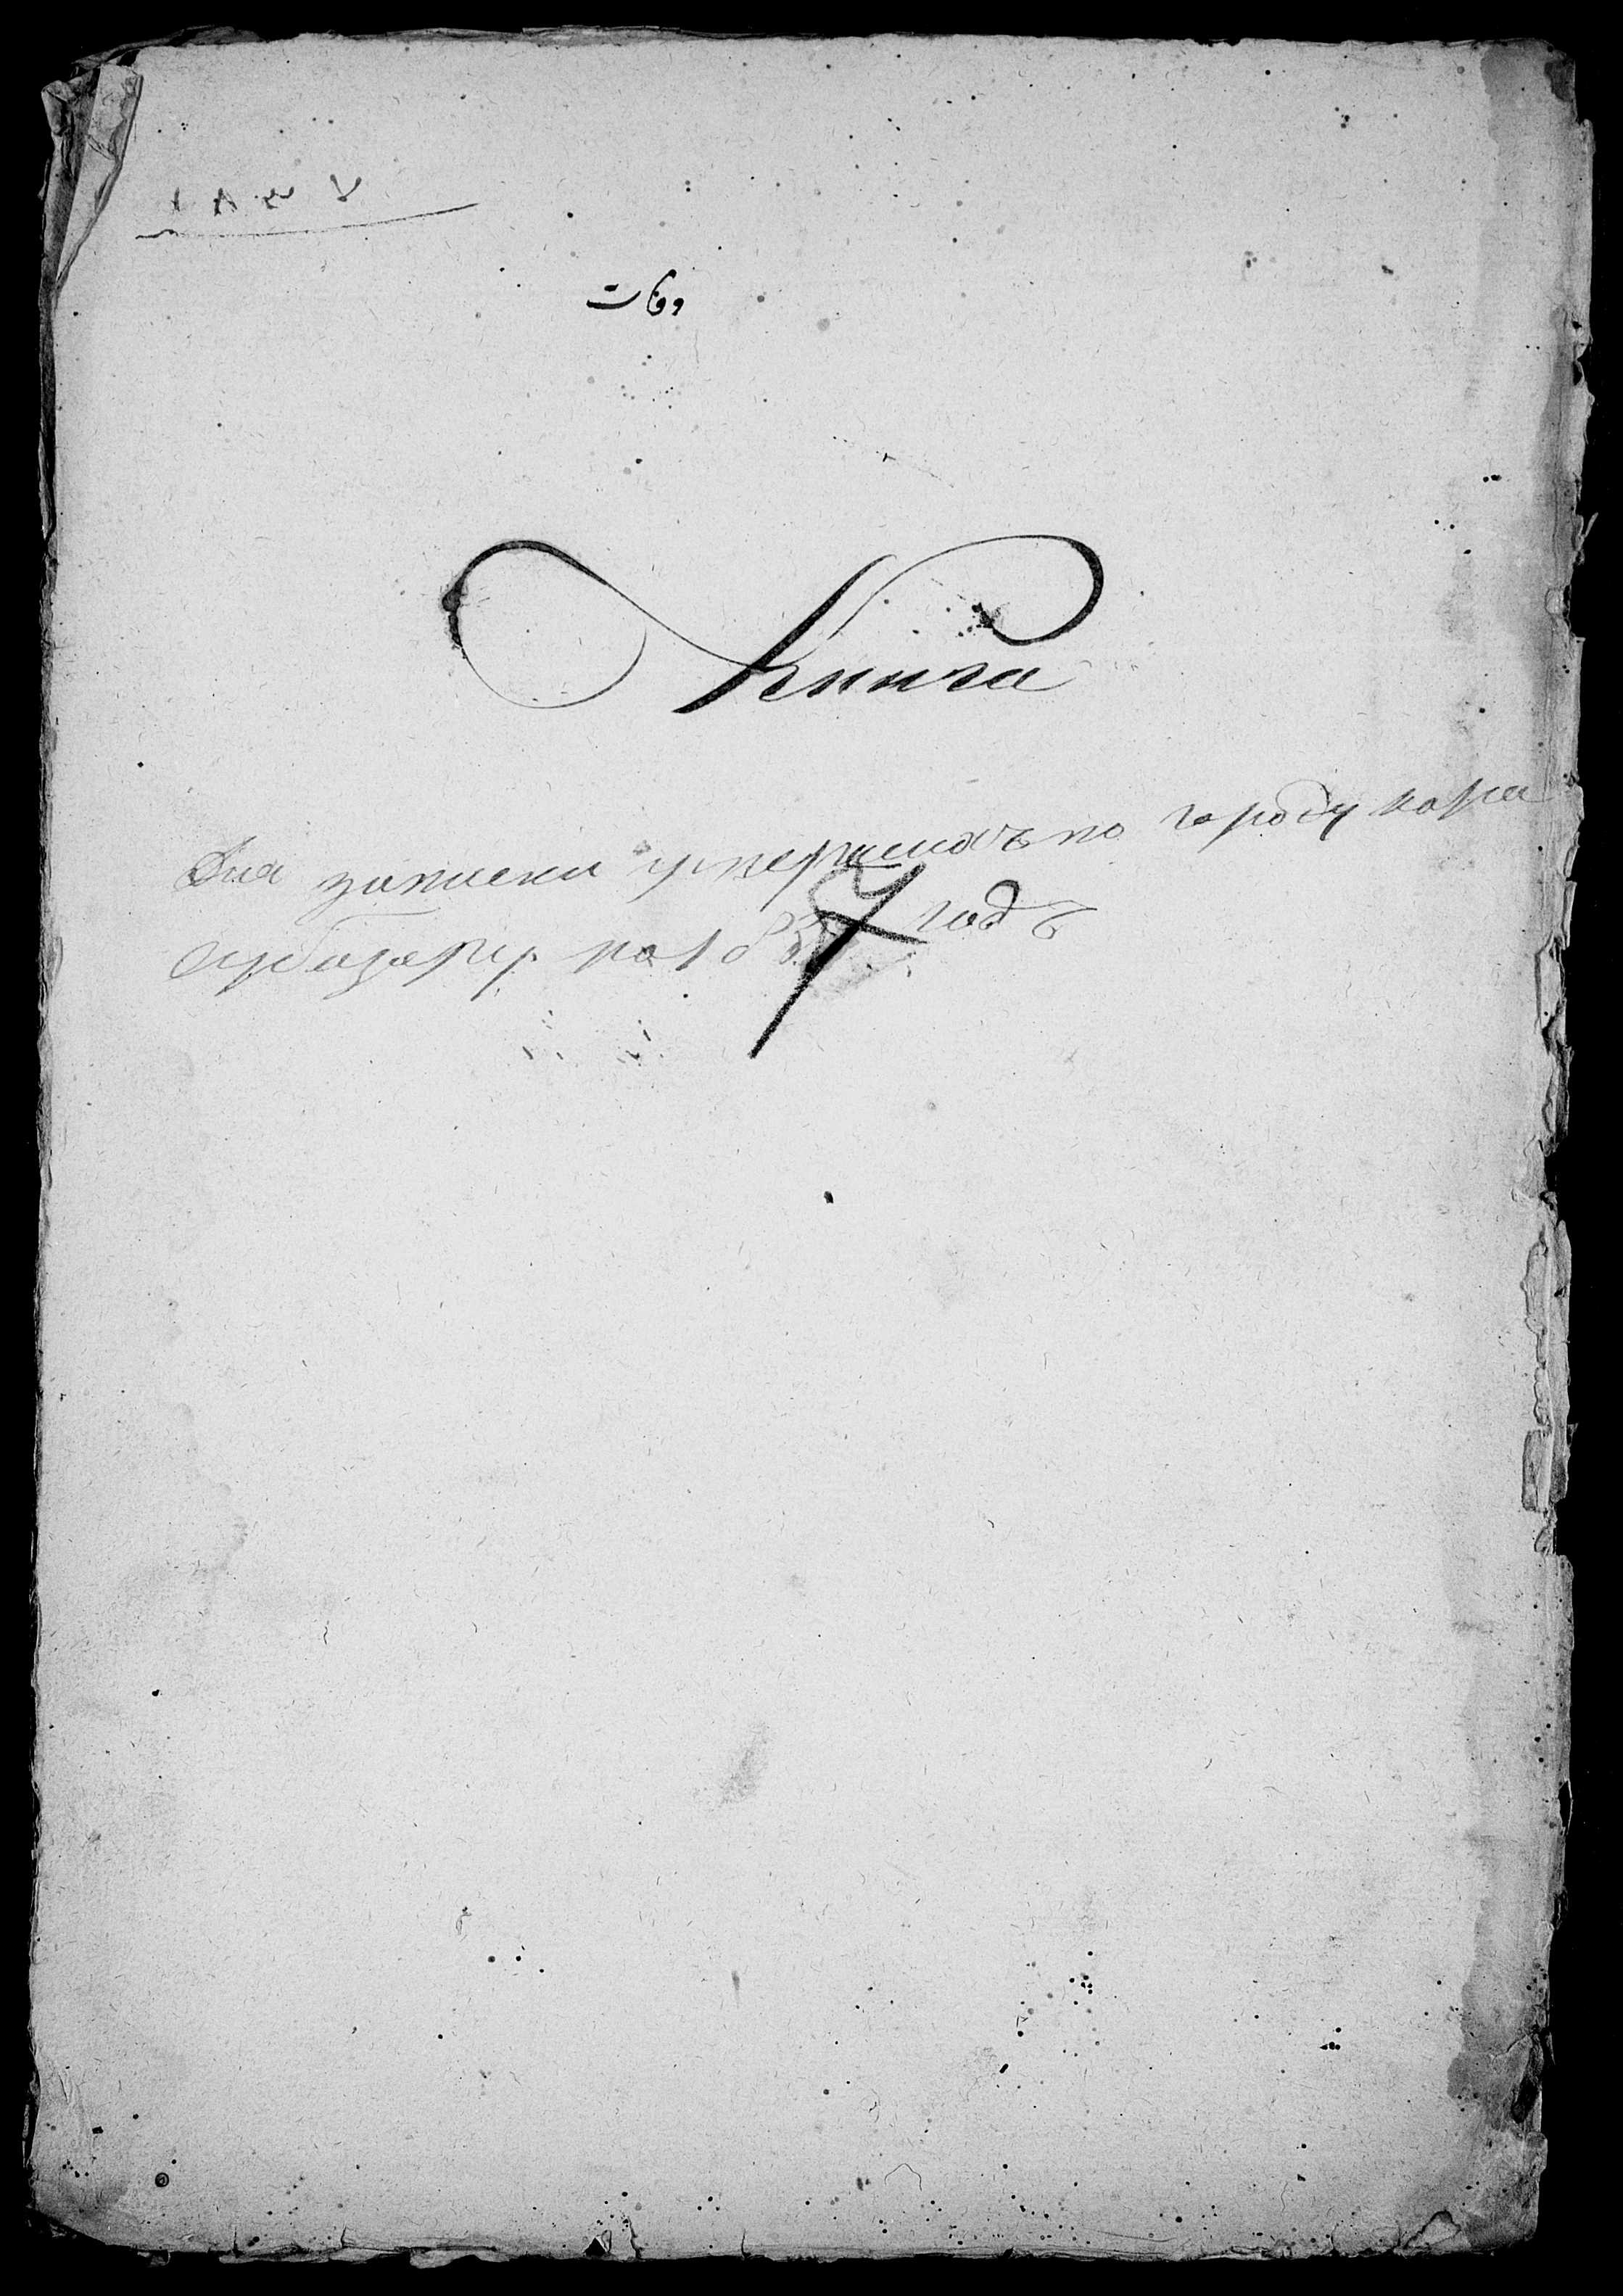 1837
وفات
Книга
Для записки умершихъ по городу кара
субазару на 1837 годъ